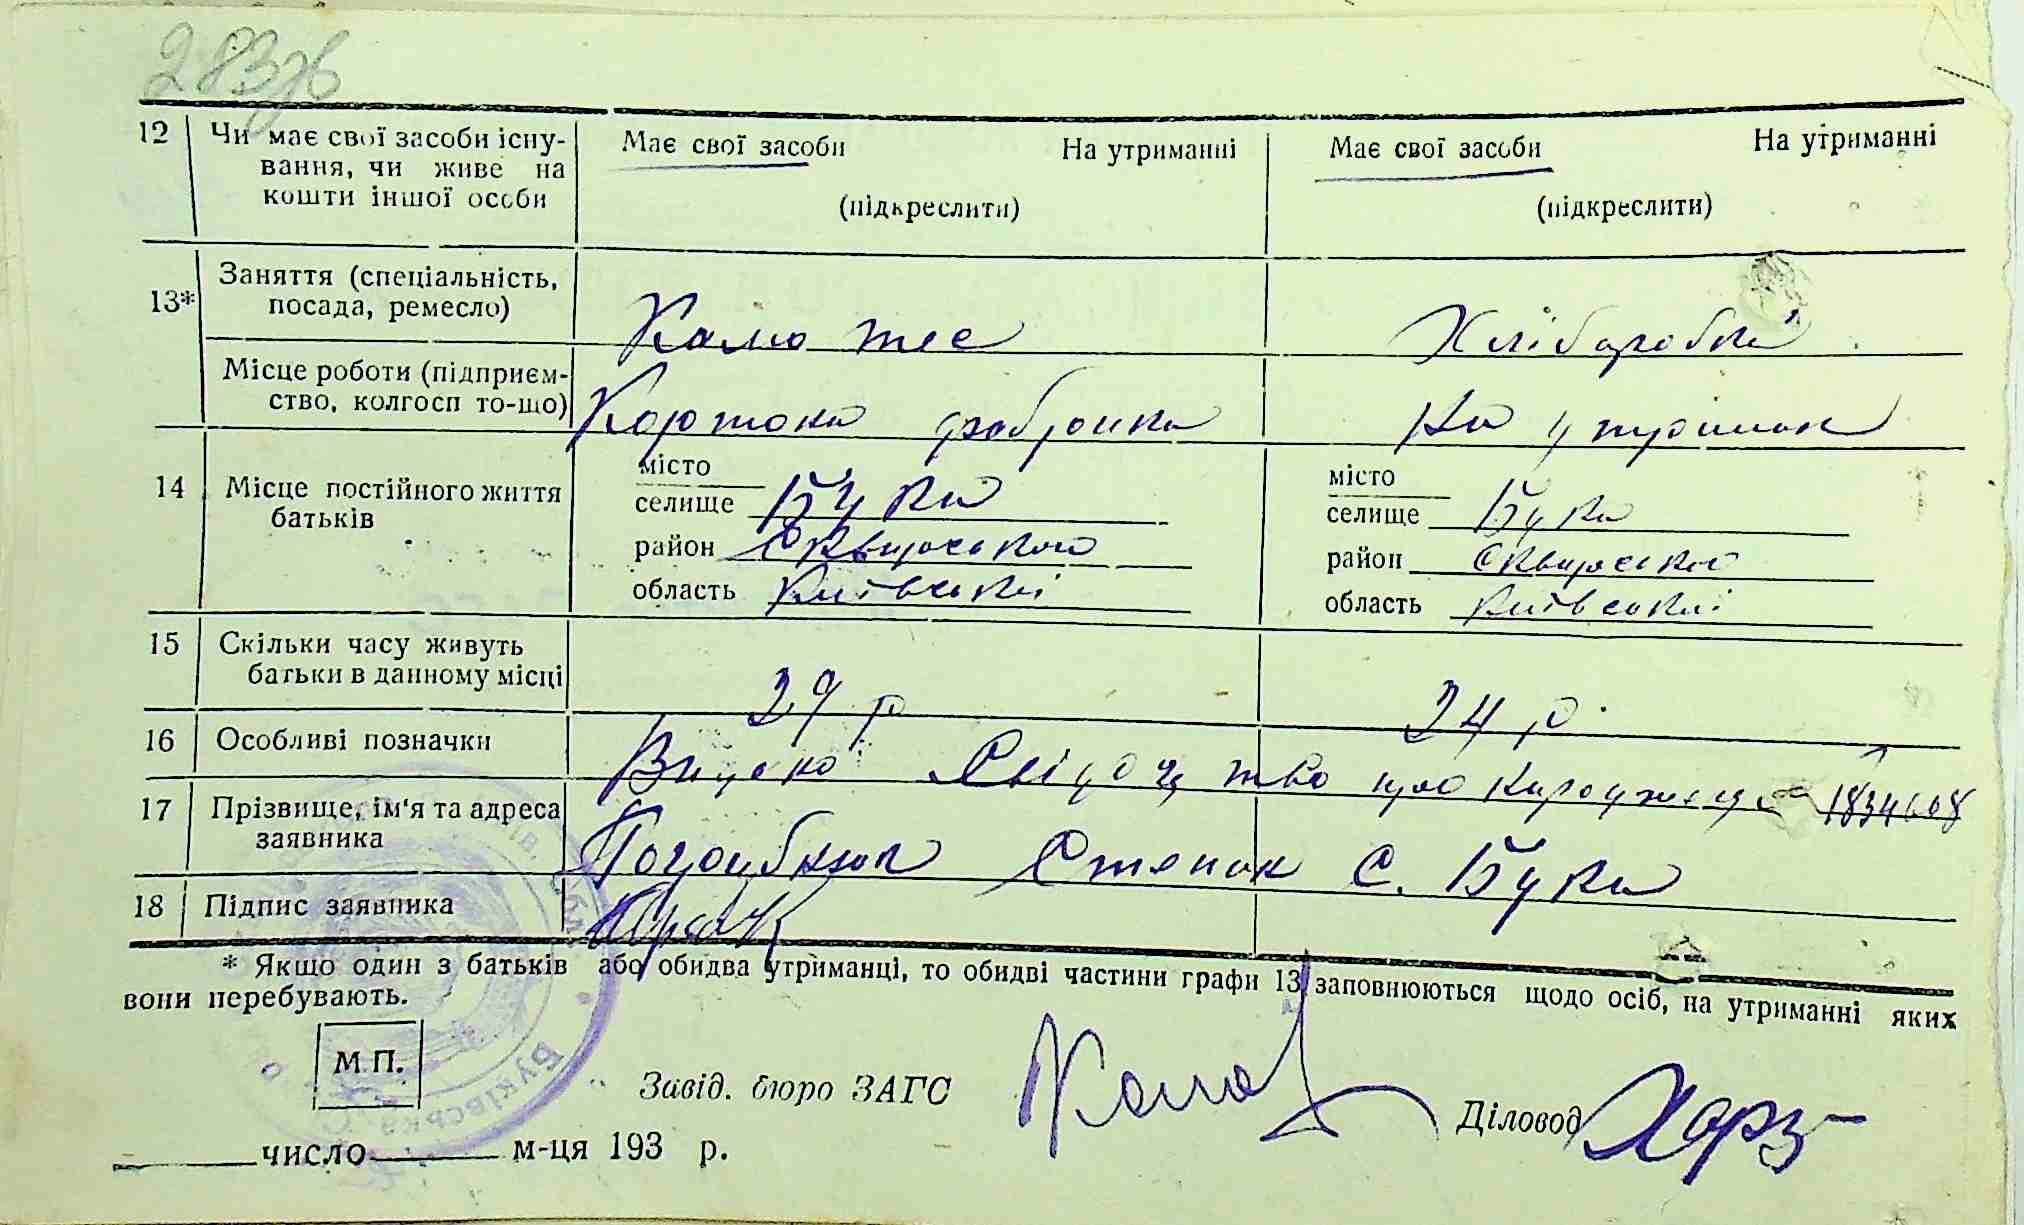 283зв
12 Чи має свої засоби існу- Має свої засоби На утриманні Має свої засоби На утриманні
вання, чи живе на
кошти іншої особи (підкреслити) (підкреслити)
13* Заняття (спеціальність,
посада, ремесло) Хлібороб
Місце роботи (підприєм-
ство, колгосп то-що) фабрика На утриман
14 Місце постійного життя
батьків
місто місто
селище Буки селище Буки
район Сквирського район Сквирського
область Київської область Київської
15 Скільки часу живуть
батьки в данному місці 29 р 24 р.
16 Особливі позначки Видано Свідоцтво про народження 1834608
17 Прізвище, ім'я та адреса
заявника Поддубнюк Степан с. Буки
18 Підпис заявника
* Якщо один з батьків або обидва утриманці, то обидві частини графи 13 заповнюються щодо осіб, на утриманні яких
вони перебувають.
М.П.
Завід. бюро ЗАГС
Діловод
число м-ця 193 р.
Буківська